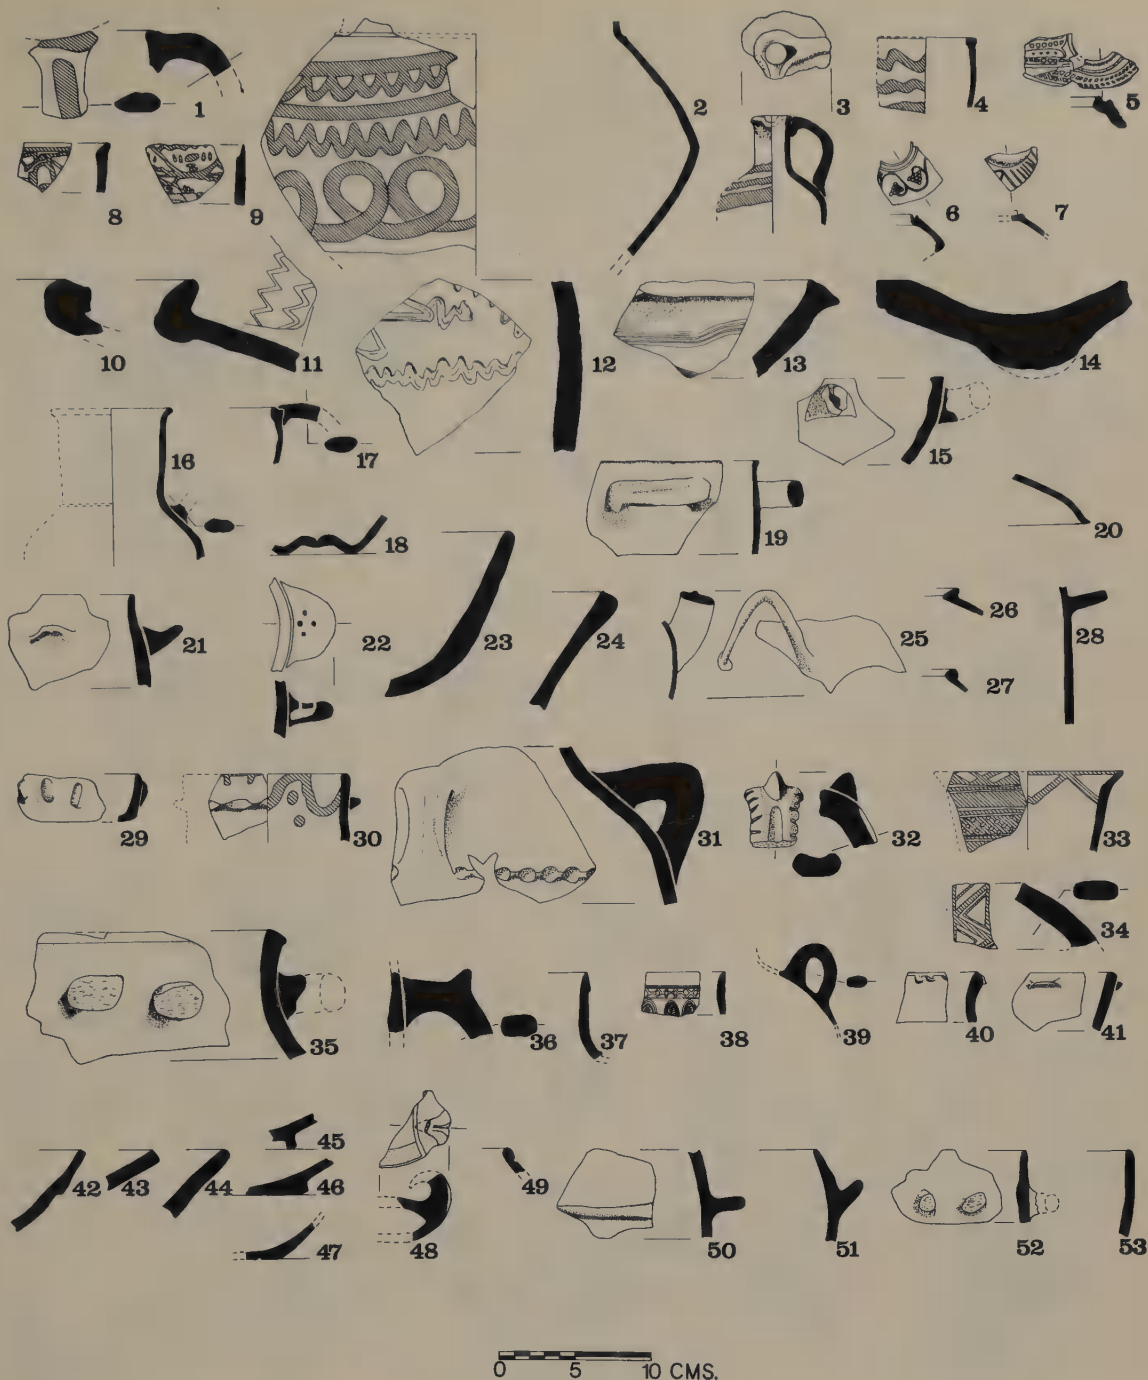 1
2
3
4
5
8
9
6
7
10
11
12
13
14
15
16
17
18
19
20
21
22
23
24
25
26
27
28
29
30
31
32
33
34
35
36
37
38
39
40
41
42
43
44
45
46
47
48
49
50
51
52
53
0 5 10 CMS.